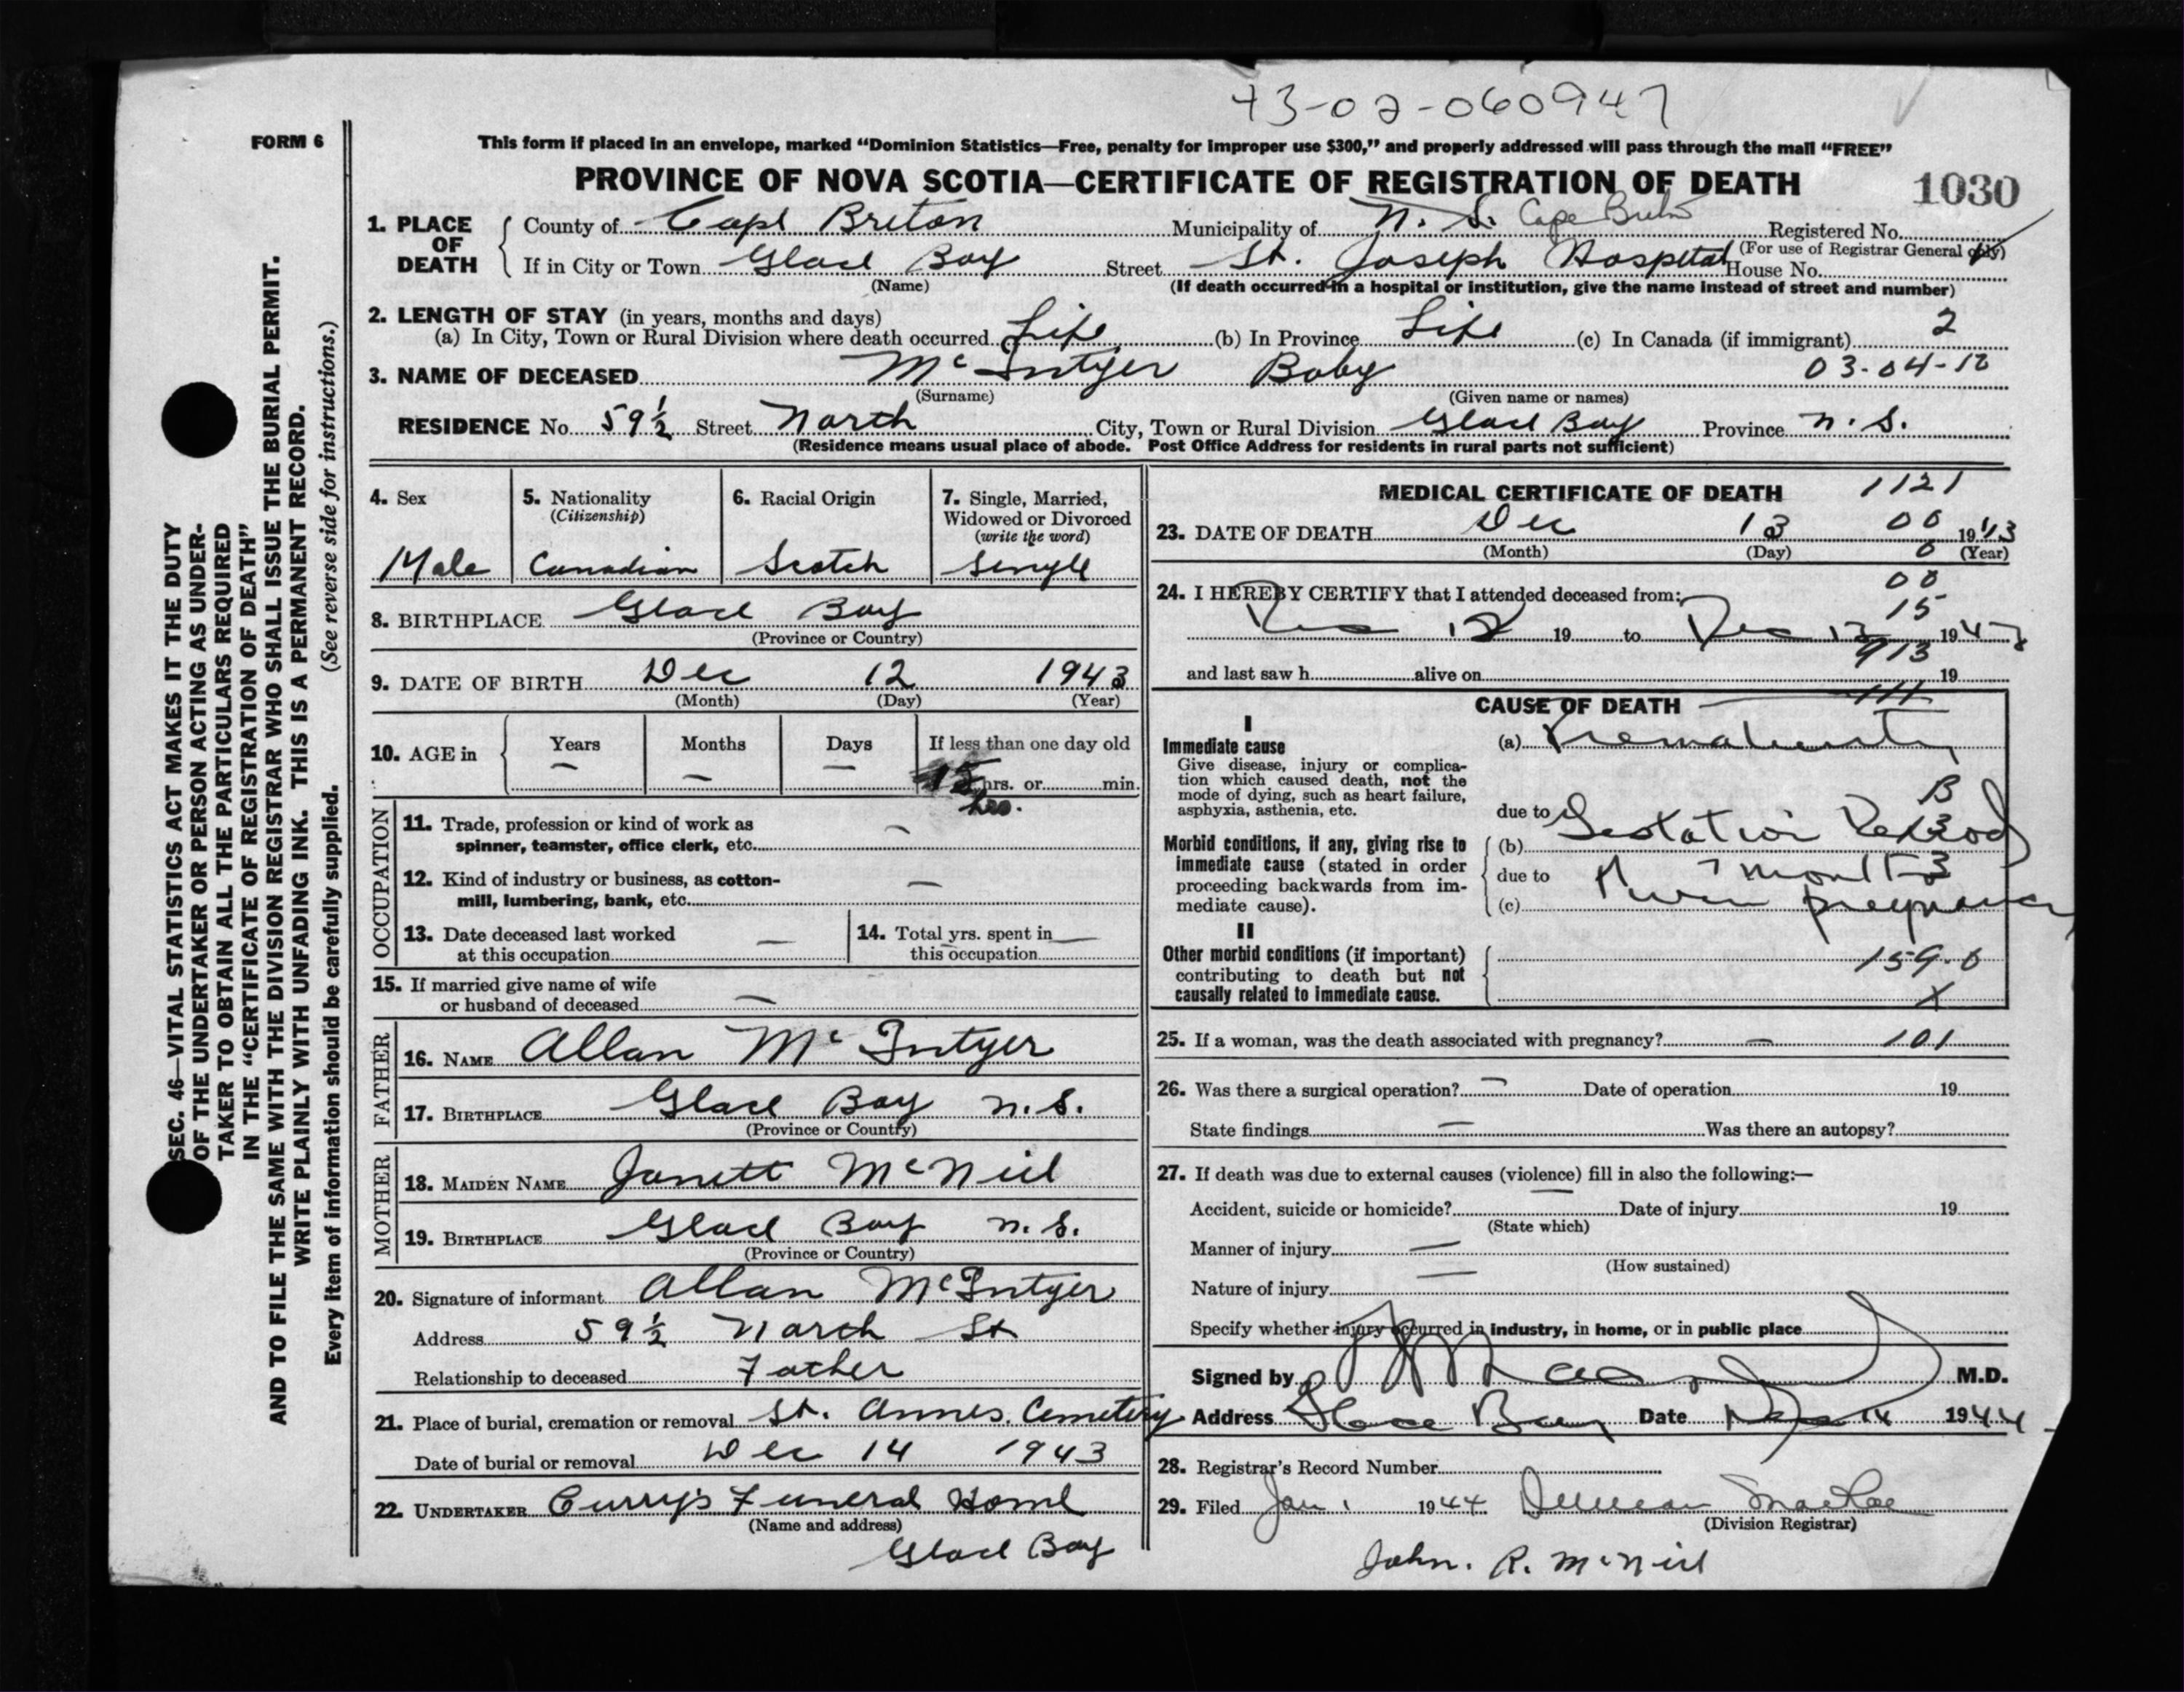 43-02-060947
FORM 6
This form if placed in an envelope, marked "Dominion Statistics—Free, penalty for improper use $300," and properly addressed will pass through the mail "FREE"
PROVINCE OF NOVA SCOTIA—CERTIFICATE OF REGISTRATION OF DEATH 1030
1. PLACE OF DEATH
County of Cape Breton Municipality of N. S. Cape Breton Registered No.
(For use of Registrar General only)
If in City or Town Glace Bay Street St. Joseph Hospital House No.
(Name) (If death occurred in a hospital or institution, give the name instead of street and number)
2. LENGTH OF STAY (in years, months and days)
(a) In City, Town or Rural Division where death occurred Life (b) In Province Life (c) In Canada (if immigrant) 2
3. NAME OF DECEASED Mc Intyer Baby 03-04-10
(Surname) (Given name or names)
RESIDENCE No. 59½ Street North City, Town or Rural Division Glace Bay Province N. S.
(Residence means usual place of abode. Post Office Address for residents in rural parts not sufficient)
4. Sex
Male
5. Nationality
(Citizenship)
Canadian
6. Racial Origin
Scotch
7. Single, Married,
Widowed or Divorced
(write the word)
Single
8. BIRTHPLACE Glace Bay
(Province or Country)
9. DATE OF BIRTH Dec 12 1943
(Month) (Day) (Year)
10. AGE in Years Months Days If less than one day old
— — — 15 hrs. or min.
hrs.
OCCUPATION
11. Trade, profession or kind of work as
spinner, teamster, office clerk, etc. —
12. Kind of industry or business, as cotton-
mill, lumbering, bank, etc. —
13. Date deceased last worked
at this occupation —
14. Total yrs. spent in
this occupation —
15. If married give name of wife
or husband of deceased —
FATHER
16. NAME Allan Mc Intyer
17. BIRTHPLACE Glace Bay N.S.
(Province or Country)
MOTHER
18. MAIDEN NAME Janett McNeil
19. BIRTHPLACE Glace Bay N.S.
(Province or Country)
20. Signature of informant Allan McIntyer
Address 59½ North St
Relationship to deceased Father
21. Place of burial, cremation or removal St. Annes. Cemetery
Date of burial or removal Dec 14 1943
22. UNDERTAKER Curry's Funeral Home
(Name and address)
Glace Bay
MEDICAL CERTIFICATE OF DEATH 1121
23. DATE OF DEATH Dec 13 00 1943
(Month) (Day) 0 (Year)
00
24. I HEREBY CERTIFY that I attended deceased from:
15
Dec 12 19 to Dec 13 1943
913
and last saw h alive on 19
CAUSE OF DEATH
I
Immediate cause
Give disease, injury or complica-
tion which caused death, not the
mode of dying, such as heart failure,
asphyxia, asthenia, etc.
(a) Prematurity
B
due to Gestation Period
Morbid conditions, if any, giving rise to
immediate cause (stated in order
proceeding backwards from im-
mediate cause).
(b) 7 months
due to Twin pregnancy
(c)
II
Other morbid conditions (if important)
contributing to death but not
causally related to immediate cause.
159.0
X
25. If a woman, was the death associated with pregnancy? — 101
26. Was there a surgical operation? — Date of operation 19
State findings — Was there an autopsy?
27. If death was due to external causes (violence) fill in also the following:—
Accident, suicide or homicide? — Date of injury 19
(State which)
Manner of injury —
(How sustained)
Nature of injury —
Specify whether injury occurred in industry, in home, or in public place
Signed by M.D.
Address Glace Bay Date Dec 14 1944
28. Registrar's Record Number
29. Filed Jan 1 1944 Duncan MacRae
(Division Registrar)
John. R. McNeil
SEC. 46—VITAL STATISTICS ACT MAKES IT THE DUTY
OF THE UNDERTAKER OR PERSON ACTING AS UNDER-
TAKER TO OBTAIN ALL THE PARTICULARS REQUIRED
IN THE "CERTIFICATE OF REGISTRATION OF DEATH"
AND TO FILE THE SAME WITH THE DIVISION REGISTRAR WHO SHALL ISSUE THE BURIAL PERMIT.
WRITE PLAINLY WITH UNFADING INK. THIS IS A PERMANENT RECORD.
Every item of information should be carefully supplied. (See reverse side for instructions.)